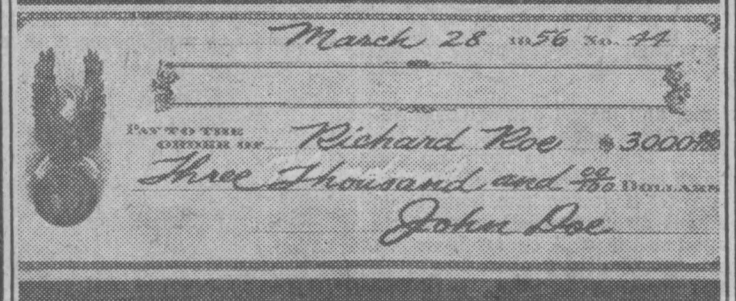 March 28 1956 No. 44
PAY TO THE
ORDER OF Richard Roe $ 3000 00/100
Three Thousand and 00/100 DOLLARS
John Doe